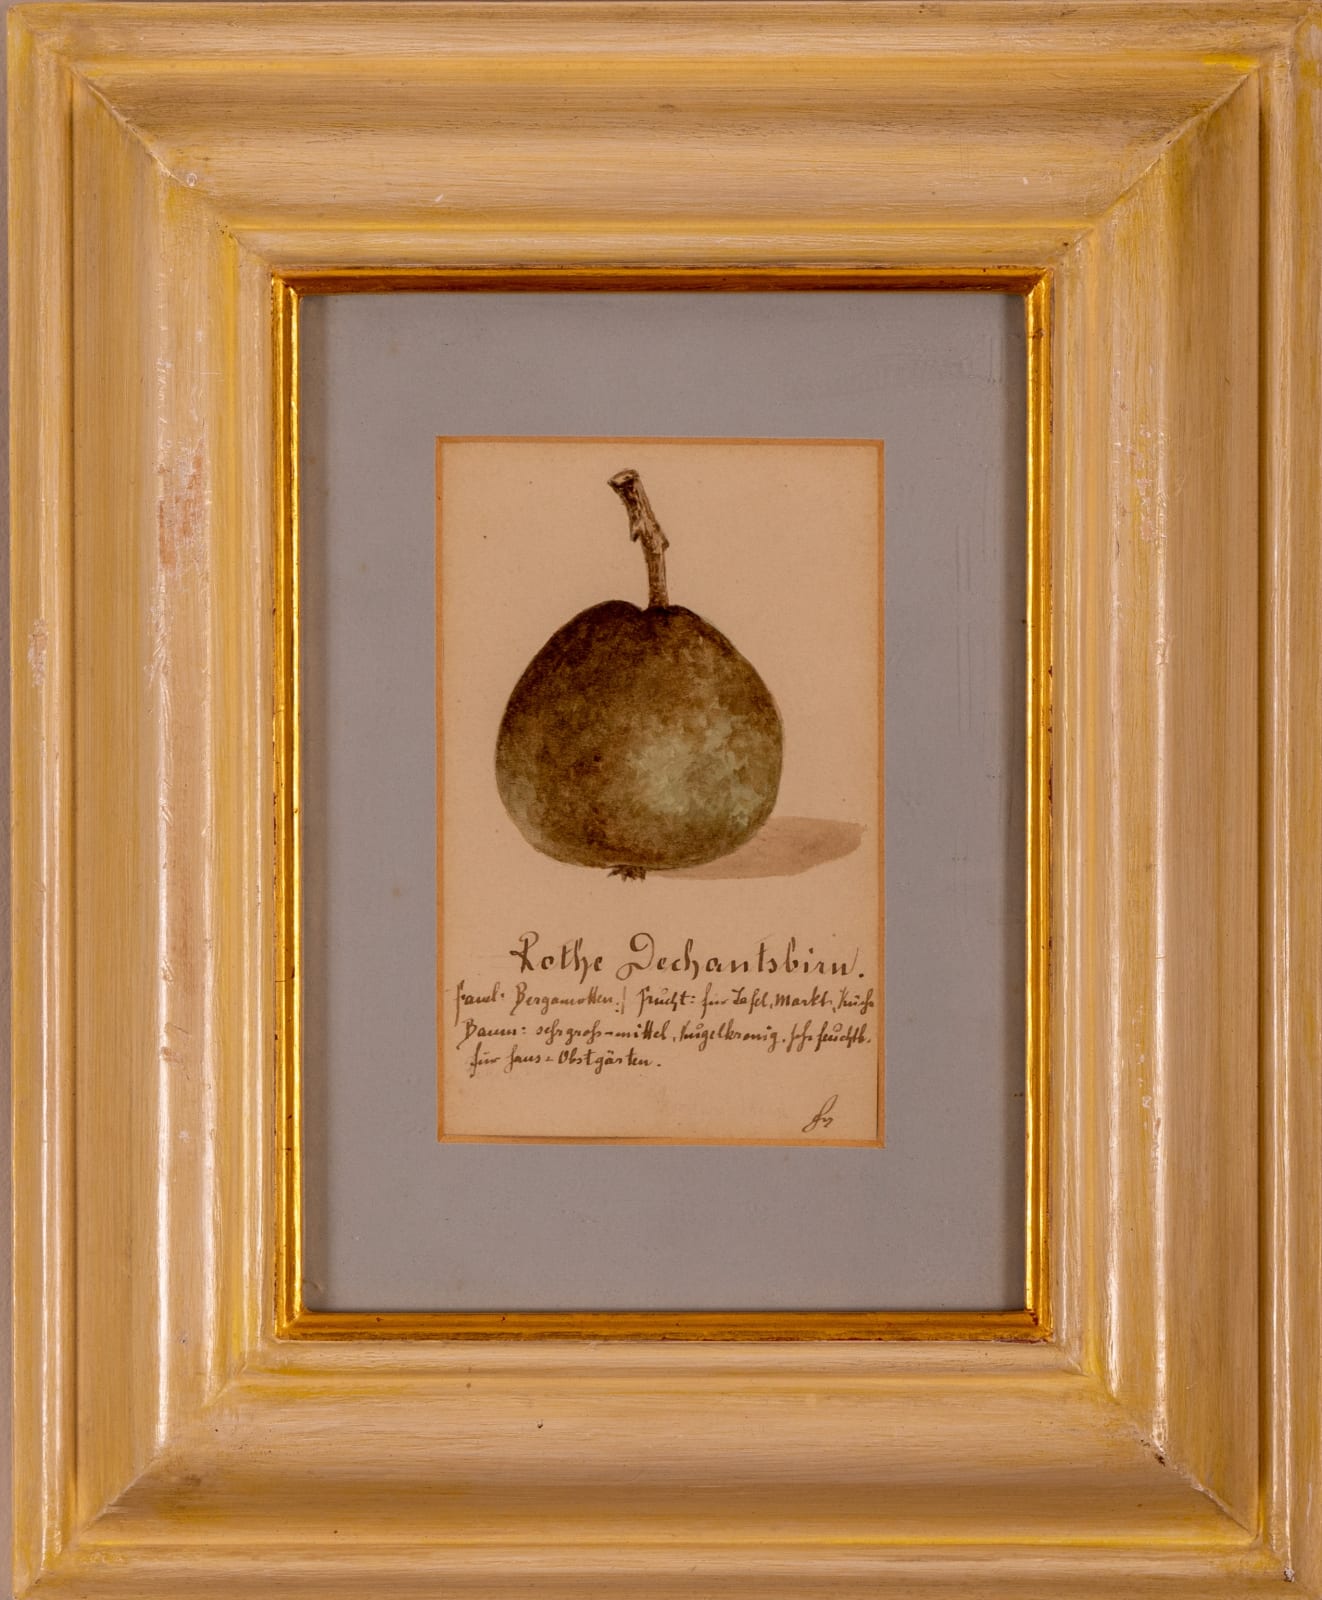 Rothe Dechantsbirn.
Famil: Bergamotten. / Frucht: für Tafel, Markt, Küche
Baum: sehr groß-mittel, kugelkronig. sehr feuchtb.
für Haus = Obstgärten.